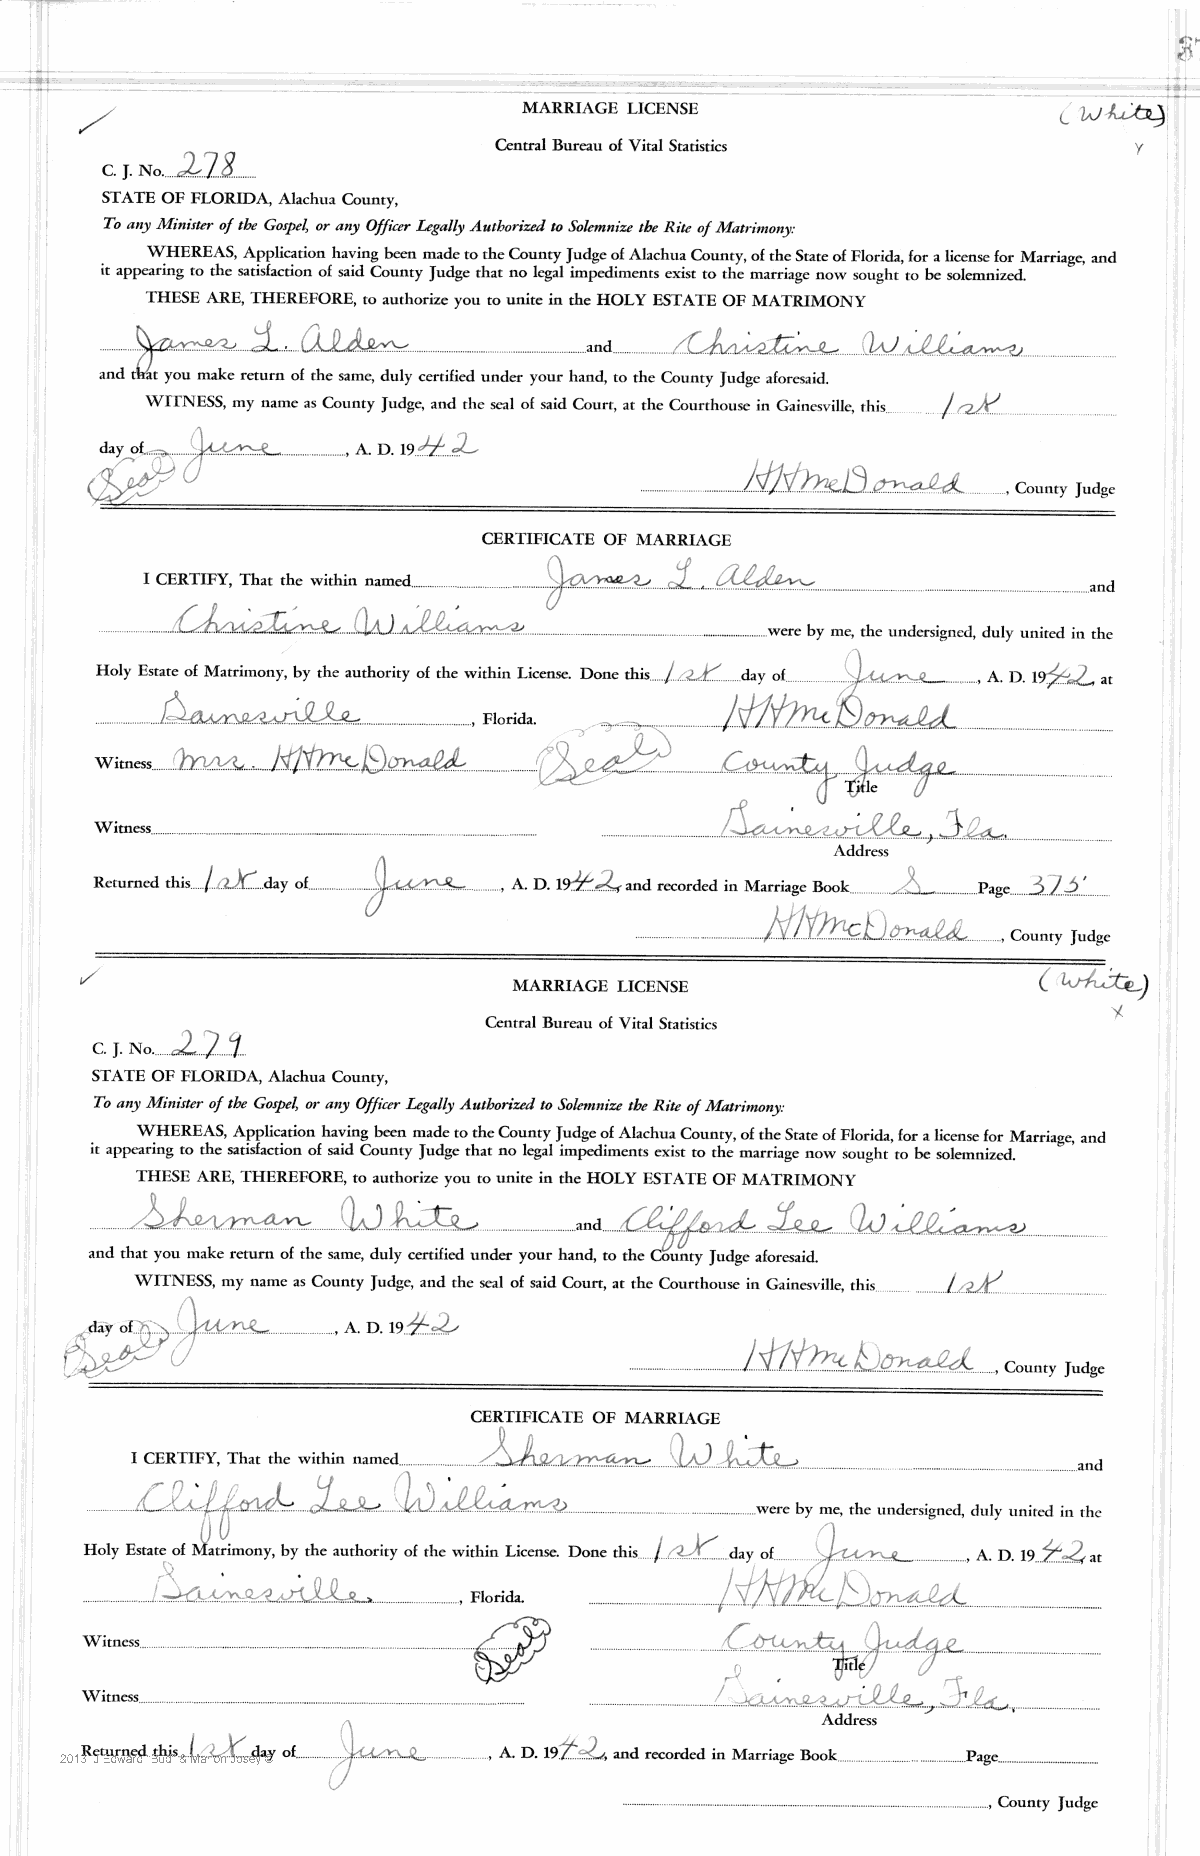 MARRIAGE LICENSE
(White)
Central Bureau of Vital Statistics
C. J. No. 278
STATE OF FLORIDA, Alachua County,
To any Minister of the Gospel, or any Officer Legally Authorized to Solemnize the Rite of Matrimony:
WHEREAS, Application having been made to the County Judge of Alachua County, of the State of Florida, for a license for Marriage, and
it appearing to the satisfaction of said County Judge that no legal impediments exist to the marriage now sought to be solemnized.
THESE ARE, THEREFORE, to authorize you to unite in the HOLY ESTATE OF MATRIMONY
James L. Alden and Christine Williams
and that you make return of the same, duly certified under your hand, to the County Judge aforesaid.
WITNESS, my name as County Judge, and the seal of said Court, at the Courthouse in Gainesville, this 1st
day of June, A. D. 1942
(Seal) HHMcDonald, County Judge
CERTIFICATE OF MARRIAGE
I CERTIFY, That the within named James L. Alden and
Christine Williams were by me, the undersigned, duly united in the
Holy Estate of Matrimony, by the authority of the within License. Done this 1st day of June, A. D. 1942, at
Gainesville, Florida. HHMcDonald
Witness Mrs. HHMcDonald (Seal) County Judge
Title
Witness Gainesville, Fla.
Address
Returned this 1st day of June, A. D. 1942, and recorded in Marriage Book S Page 375
HHMcDonald, County Judge
(White)
MARRIAGE LICENSE
x
Central Bureau of Vital Statistics
C. J. No. 279
STATE OF FLORIDA, Alachua County,
To any Minister of the Gospel, or any Officer Legally Authorized to Solemnize the Rite of Matrimony:
WHEREAS, Application having been made to the County Judge of Alachua County, of the State of Florida, for a license for Marriage, and
it appearing to the satisfaction of said County Judge that no legal impediments exist to the marriage now sought to be solemnized.
THESE ARE, THEREFORE, to authorize you to unite in the HOLY ESTATE OF MATRIMONY
Sherman White and Clifford Lee Williams
and that you make return of the same, duly certified under your hand, to the County Judge aforesaid.
WITNESS, my name as County Judge, and the seal of said Court, at the Courthouse in Gainesville, this 1st
day of June, A. D. 1942
(Seal) HHMcDonald, County Judge
CERTIFICATE OF MARRIAGE
I CERTIFY, That the within named Sherman White and
Clifford Lee Williams were by me, the undersigned, duly united in the
Holy Estate of Matrimony, by the authority of the within License. Done this 1st day of June, A. D. 1942, at
Gainesville, Florida. HHMcDonald
Witness (Seal) County Judge
Title
Witness Gainesville, Fla.
Address
Returned this 1st day of June, A. D. 1942, and recorded in Marriage Book Page
2013 J Edward "Bud" & Marion Josey ©
, County Judge